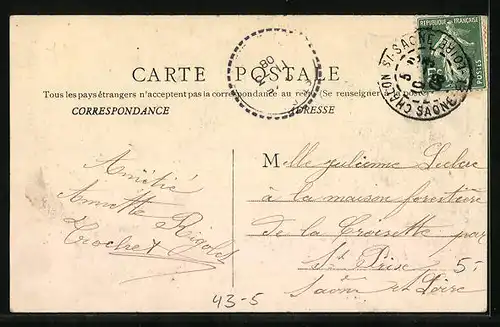 CARTE POSTALE
Tous les pays étrangers n'acceptent pas la correspondance au recto (Se renseigner
CORRESPONDANCE
ADRESSE
RÉPUBLIQUE FRANÇAISE
POSTES
CHALON S. SAONE
SAONE
08
Amitié
Annette Rigolet
Trochet
Melle Julienne Leclerc
à la maison forestière
de la Croisette par
St Prix
Saône et Loire
5-
43-5